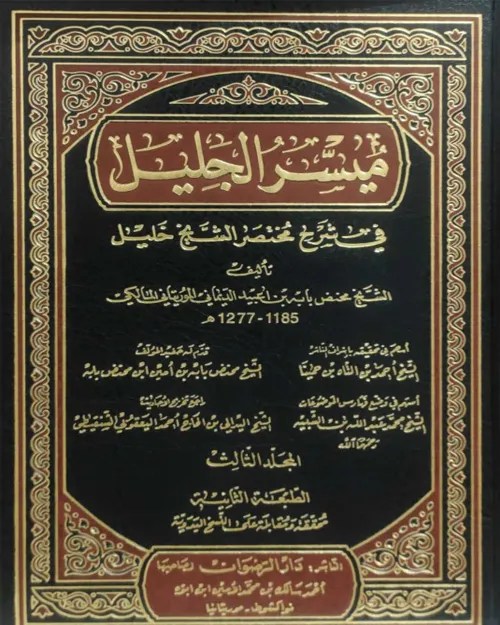 ميسر الجليل
في شرح مختصر الشيخ خليل
تأليف
الشيخ محنض بابه بن اعبيد الديماني الموريتاني المالكي
1185-1277 هـ
أسهم في تحقيقه بإشراف الناشر
الشيخ أحمد بن النّاه بن حمينّا
قدم له حفيد المؤلف
الشيخ محنض بابه بن أمين ابن محنض بابه
أسهم في وضع فهارس الموضوعات
الشيخ محمد عبد الله بن الشبيه
رحمهما الله
راجع تخريج الأحاديث
الشيخ اليدالي بن الحاج أحمد اليعقوبي الشنقيطي
المجلد الثالث
الطبعة الثانية
محققة ومقابلة على النسخ اليدوية
الناشر: دار الرضوان لصاحبها
أحمد سالك بن محمد الأمين ابن ابوه
نواكشوط - موريتانيا